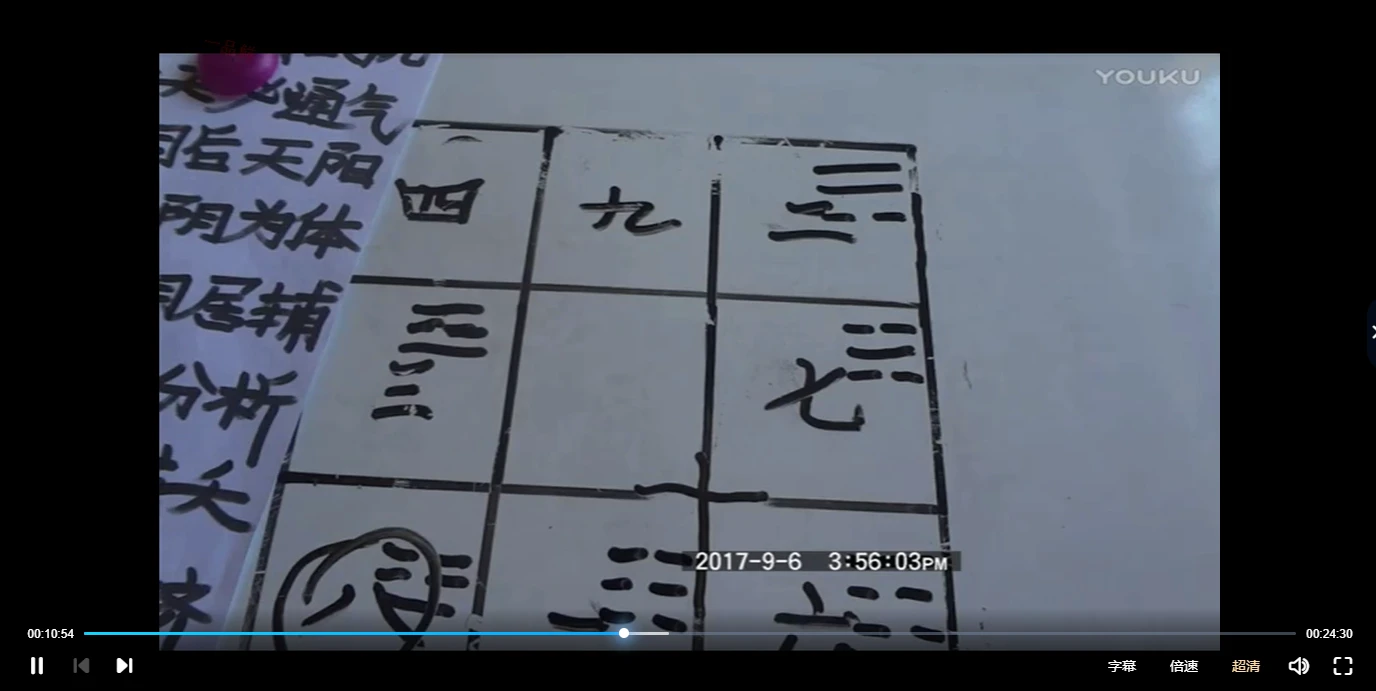 YOUKU
通气
后天阳
阴为体
居辅
分析
夭
济
四
九
二
七
三
八
一
六
2017-9-6 3:56:03PM
00:10:54
00:24:30
字幕
倍速
超清